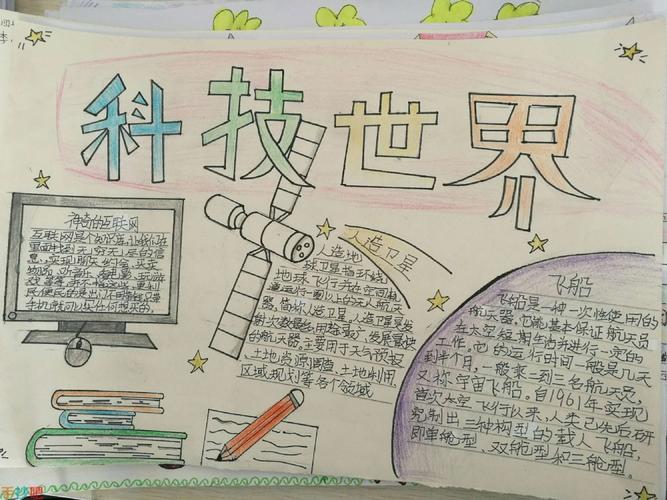 科技世界
神奇的互联网
互联网是个知识库,让我们在
里面找到无穷无尽的信
人造卫星
人造地
球卫星指环绕
地球飞行并在空间轨
道运行一圈以上的无人航天
器,简称人造卫星。人造卫星是发
射次数最多,用途最广,发展最快
的航天器。主要用于天气预报
、土地资源调查、土地利用、
区域规划等各个领域
飞船
飞船是一种一次性使用的
航天器,它能基本保证航天员
在太空短期生活并进行一定的
工作。它的运行时间一般是几天
到半个月,一般乘二到三名航天员,
又称宇宙飞船。自1961年实现
首次太空飞行以来,人类已先后研
究制出三种构型的载人飞船,
即单舱型、双舱型和三舱型。